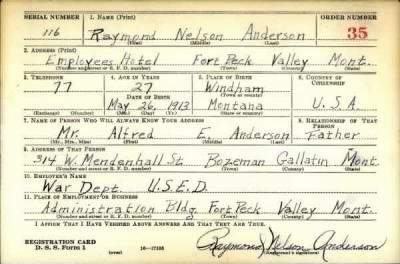 SERIAL NUMBER 1. NAME (Print) ORDER NUMBER
116 Raymond Nelson Anderson 35
(First) (Middle) (Last)
2. ADDRESS (Print)
Employees Hotel Fort Peck Valley Mont.
(Number and street or R. F. D. number) (Town) (County) (State)
3. TELEPHONE 4. AGE IN YEARS 5. PLACE OF BIRTH 6. COUNTRY OF CITIZENSHIP
77 27 Windham
DATE OF BIRTH (Town or county)
May 26, 1913 Montana U.S.A.
(Exchange) (Number) (Mo.) (Day) (Yr.) (State or country)
7. NAME OF PERSON WHO WILL ALWAYS KNOW YOUR ADDRESS 8. RELATIONSHIP OF THAT PERSON
Mr. Alfred E. Anderson Father
(Mr., Mrs., Miss) (First) (Middle) (Last)
9. ADDRESS OF THAT PERSON
314 W. Mendenhall St. Bozeman Gallatin Mont.
(Number and street or R. F. D. number) (Town) (County) (State)
10. EMPLOYER'S NAME
War Dept. U.S.E.D.
11. PLACE OF EMPLOYMENT OR BUSINESS
Administration Bldg. Fort Peck Valley Mont.
(Number and street or R. F. D. number) (Town) (County) (State)
I AFFIRM THAT I HAVE VERIFIED ABOVE ANSWERS AND THAT THEY ARE TRUE.
REGISTRATION CARD
D. S. S. Form 1 (over) 16—17105 Raymond Nelson Anderson
(Registrant's signature)